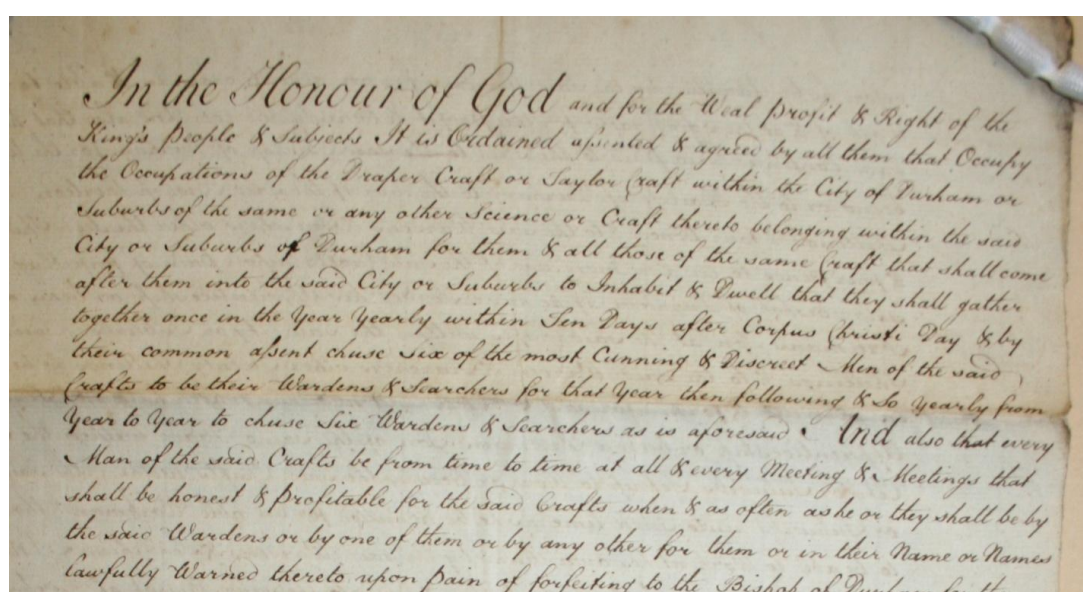 In the Honour of God and for the Weal Profit & Right of the
King's People & Subjects It is Ordained assented & agreed by all them that Occupy
the Occupations of the Draper Craft or Taylor Craft within the City of Durham or
Suburbs of the same or any other Science or Craft thereto belonging within the said
City or Suburbs of Durham for them & all those of the same Craft that shall come
after them into the said City or Suburbs to Inhabit & Dwell that they shall gather
together once in the Year Yearly within Ten Days after Corpus Christi Day & by
their common assent chuse Six of the most Cunning & Discreet Men of the said
Crafts to be their Wardens & Searchers for that Year then following & So yearly from
Year to Year to chuse Six Wardens & Searchers as is aforesaid. And also that every
Man of the said Crafts be from time to time at all & every Meeting & Meetings that
shall be honest & Profitable for the said Crafts when & as often as he or they shall be by
the said Wardens or by one of them or by any other for them or in their Name or Names
Lawfully Warned thereto upon Pain of forfeiting to the Bishop of Durham for the